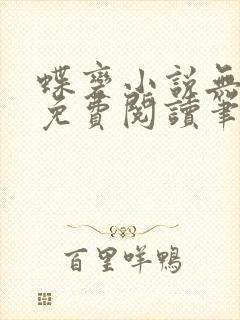 蝶變小說無
免費閱讀筆
百里咩鴨